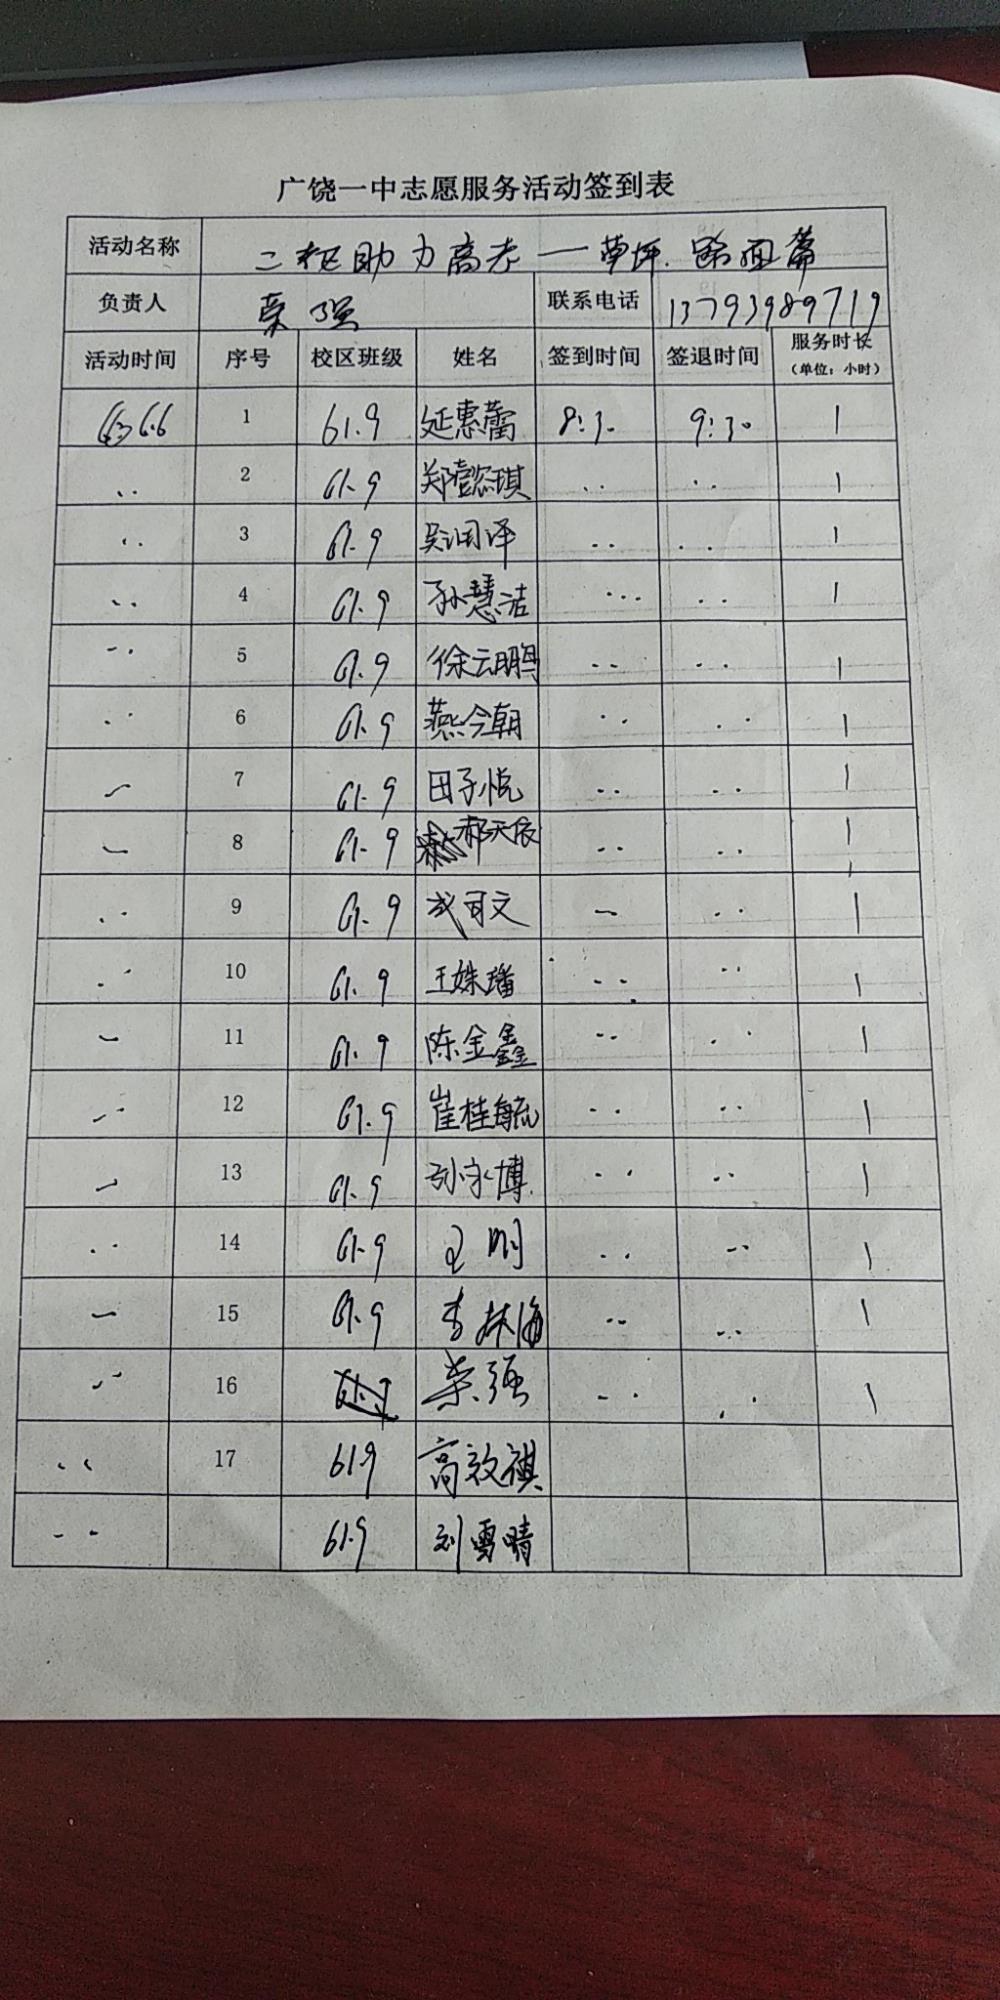 广饶一中志愿服务活动签到表
活动名称 二校助力高考一草坪.路面篇
负责人 荣强 联系电话 13793989719
活动时间 序号 校区班级 姓名 签到时间 签退时间 服务时长（单位：小时）
6.6 1 61.9 延惠蕾 8:30 9:30 1
.. 2 61.9 郑懿琪 .. .. 1
.. 3 61.9 吴润泽 .. .. 1
.. 4 61.9 孙慧洁 ... .. 1
.. 5 61.9 徐云鹏 .. .. 1
.. 6 61.9 燕今朝 .. .. 1
7 61.9 田子悦 .. .. 1
8 61.9 郝天依 .. .. 1
.. 9 61.9 成可文 .. 1
.. 10 61.9 王姝璠 .. .. 1
11 61.9 陈金鑫 .. .. 1
.. 12 61.9 崔桂毓 .. .. 1
13 61.9 孙永博 .. .. 1
.. 14 61.9 王明 .. .. 1
15 61.9 李林海 .. .. 1
.. 16 荣强 .. .. 1
.. 17 619 高效祺
.. 61.9 刘雪晴